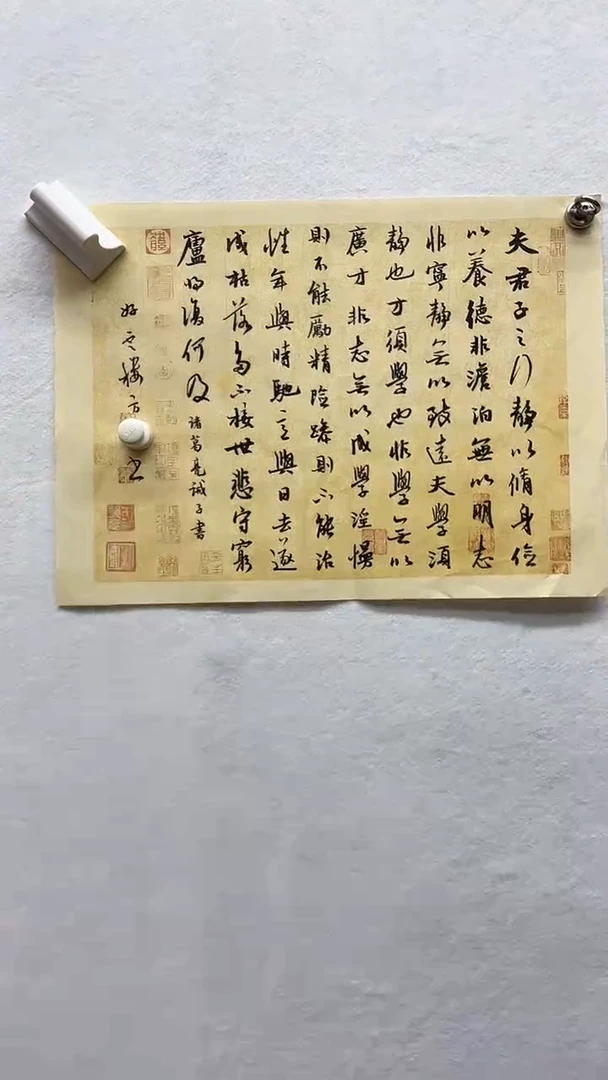 夫君子之行靜以脩身儉
以養德非澹泊無以明志
非寧靜無以致遠夫學須
靜也才須學也非學無以
廣才非志無以成學淫慢
則不能勵精險躁則不能治
性年與時馳意與日去遂
成枯落多不接世悲守窮
廬將復何及
諸葛亮誡子書
好
書